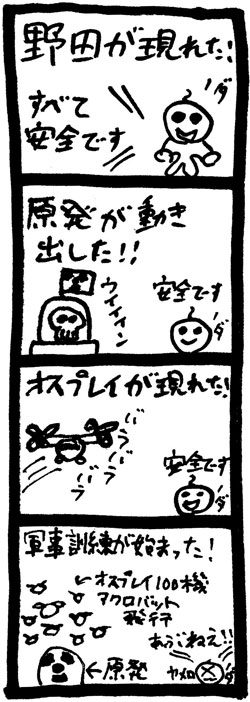 野田が現れた!
ダ
すべて
安全です
原発が動き
出した!!
ウイイイン
安全です
ダ
オスプレイが現れた!
バラバラ
バラ
安全です
ダ
軍事訓練が始まった!
←オスプレイ100機
アクロバット
飛行
あぶねえ!!
←原発
ヤメロ
ダ